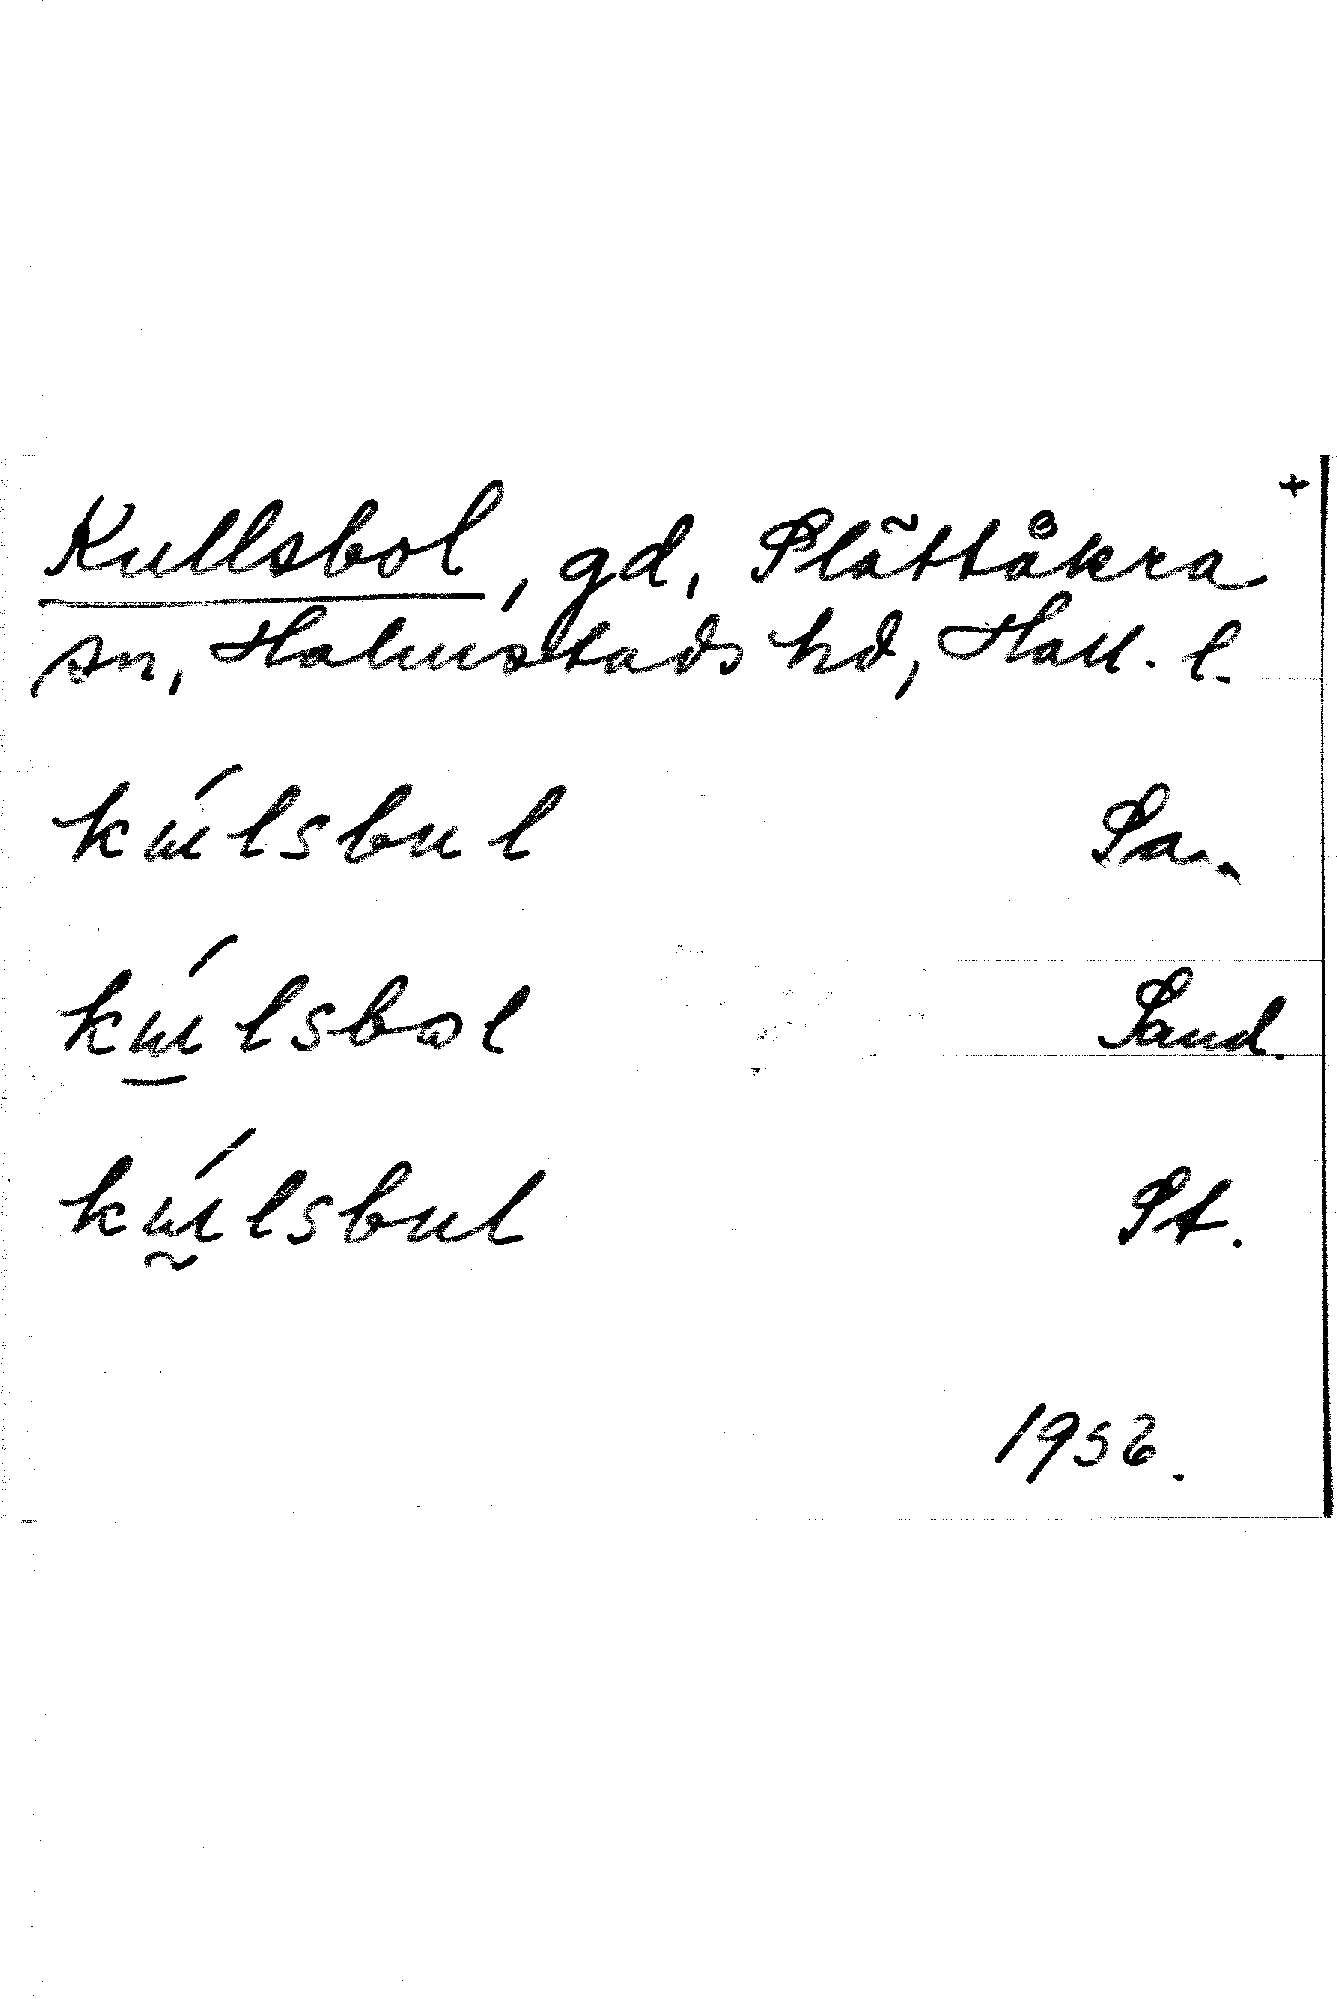 +
Kullsbol, gd, Slättåkra
sn, Halmstads hd, Hall. l.
kúlsbul Sa.
kúlsbɷl Sand.
kúlsbul St.
1956.